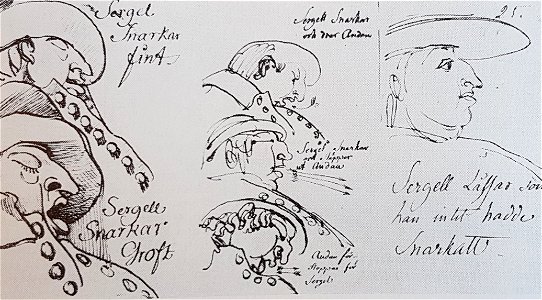 Sergel
Snarkar
fint
Sergell
Snarkar
Groft
Sergell Snarkar
och drar Andan
Sergel Snarkar
och släpper
ut Andan
Andan får
stoppas för
Sergel
25.
Sergell Låssar som
han intet hadde
Snarkatt